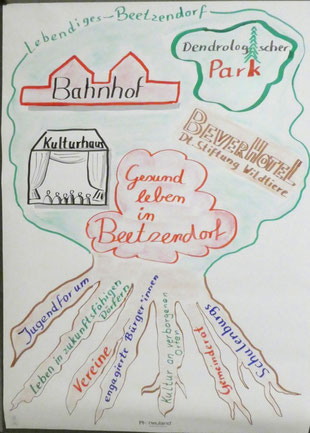 Lebendiges Beetzendorf
Dendrologischer
Park
Bahnhof
BeverHotel,
Dt. Stiftung Wildtiere
Kulturhaus
Gesund
leben
in
Beetzendorf
Jugendforum
Leben in zukunftsfähigen
Dörfern
Vereine
engagierte Bürger*innen
Kultur an verborgenen
Orten
Gemeinderat
Schulenburgs